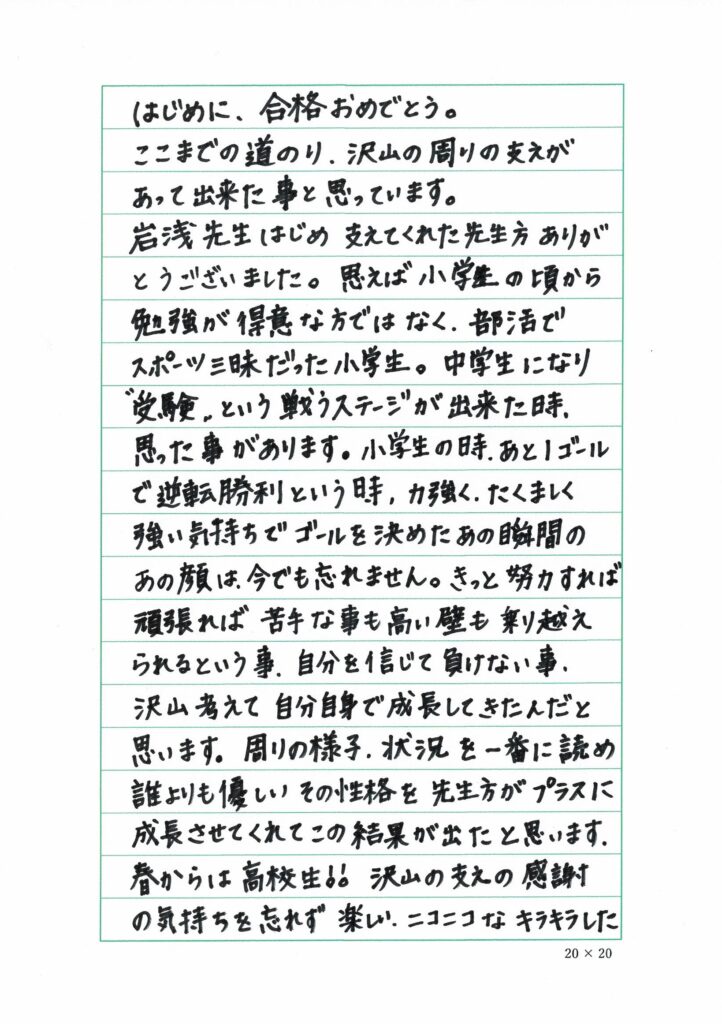 はじめに、合格おめでとう。
ここまでの道のり、沢山の周りの支えが
あって出来た事と思っています。
岩浅先生はじめ 支えてくれた先生方 ありが
とうございました。思えば小学生の頃から
勉強が得意な方ではなく、部活で
スポーツ三昧だった小学生。中学生になり
〝受験〟という戦うステージが出来た時、
思った事があります。小学生の時、あと1ゴール
で逆転勝利という時、力強く、たくましく
強い気持ちでゴールを決めたあの瞬間の
あの顔は、今でも忘れません。きっと努力すれば
頑張れば 苦手な事も高い壁も乗り越え
られるという事、自分を信じて負けない事、
沢山考えて 自分自身で成長してきたんだと
思います。周りの様子、状況を一番に読め
誰よりも優しいその性格を 先生方がプラスに
成長させてくれてこの結果が出たと思います、
春からは高校生!! 沢山の支えの感謝
の気持ちを忘れず 楽しい、ニコニコな キラキラした
20 × 20